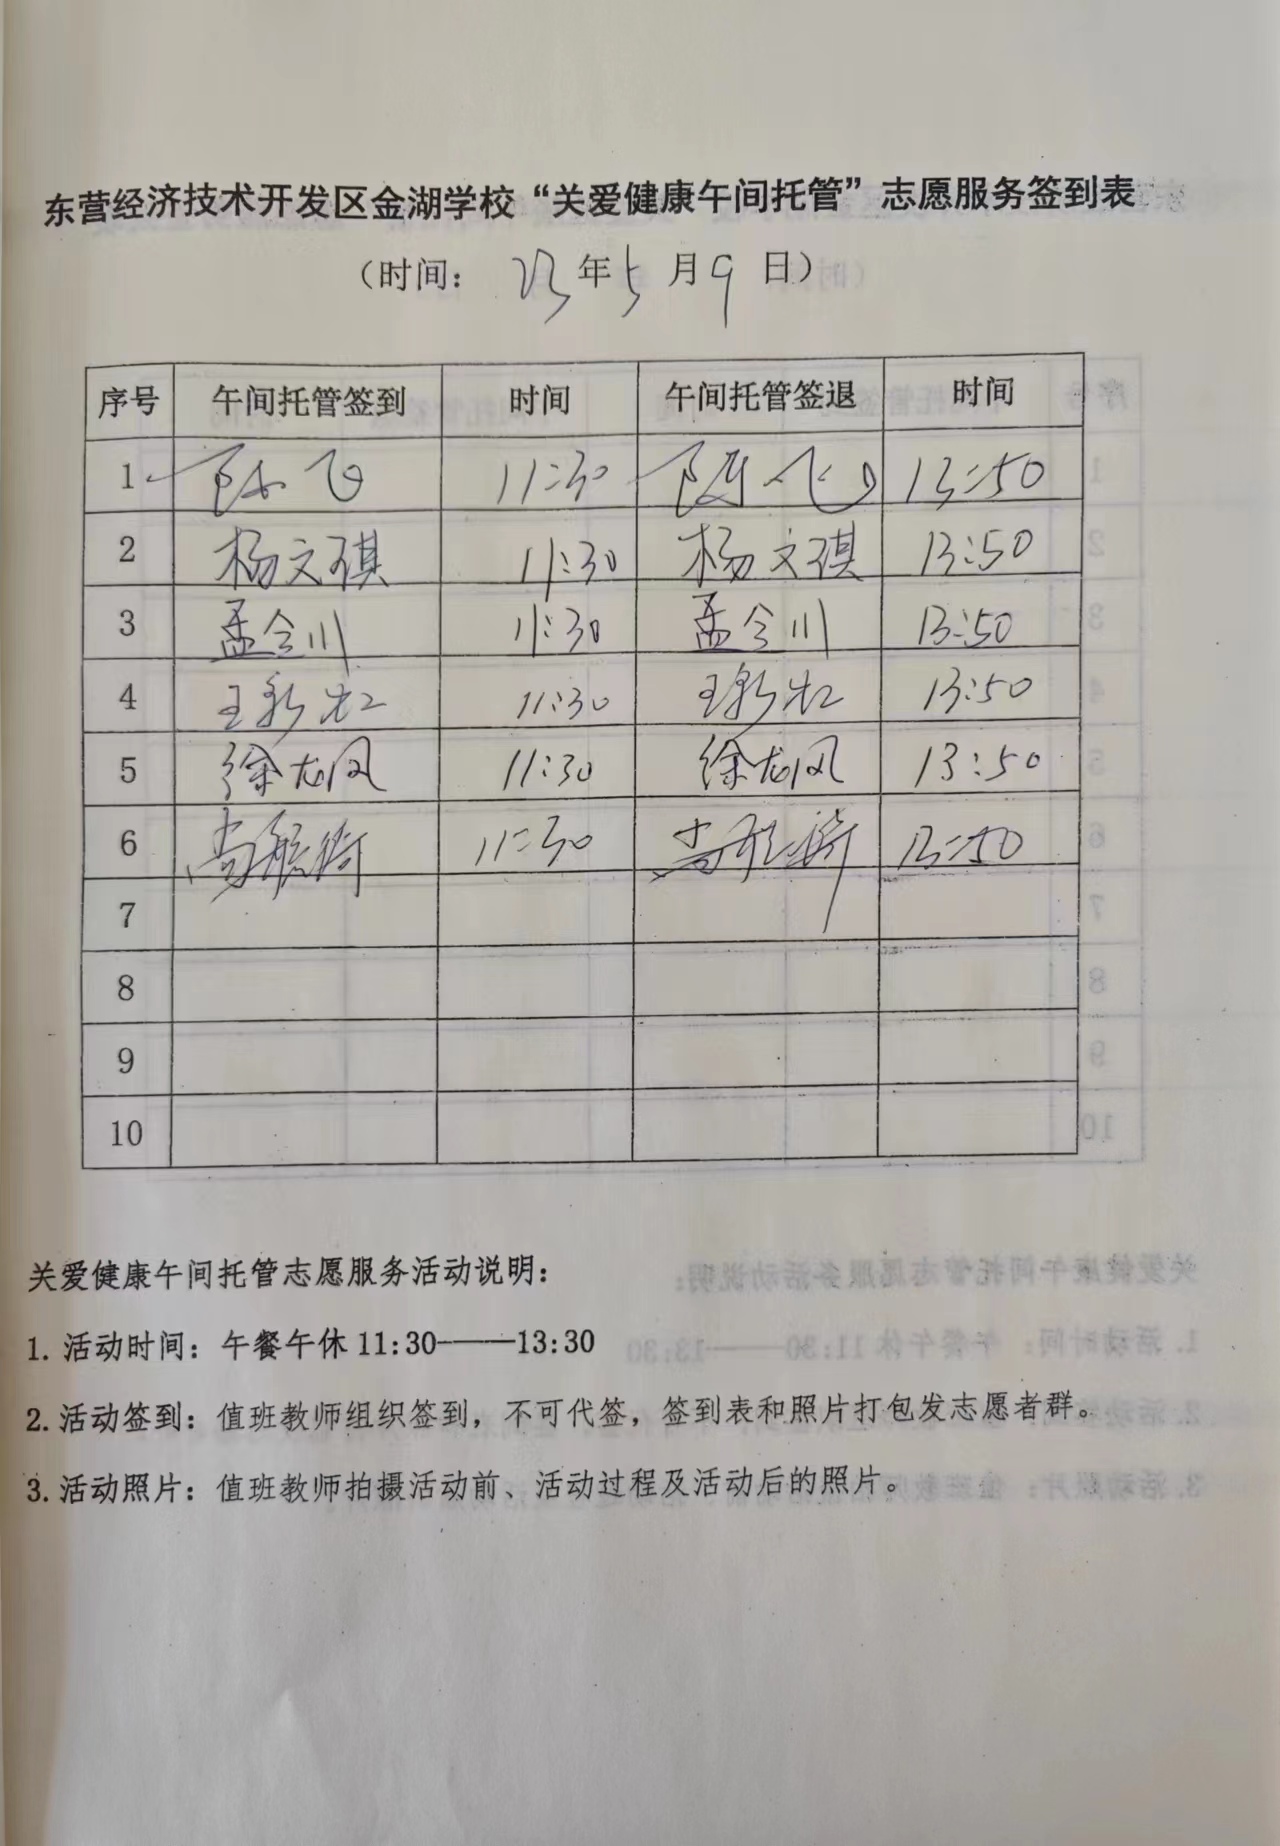 东营经济技术开发区金湖学校“关爱健康午间托管”志愿服务签到表
（时间： 23年5月9日）
序号 午间托管签到 时间 午间托管签退 时间
1 陈飞 11:30 陈飞 13:50
2 杨文琪 11:30 杨文琪 13:50
3 孟令川 11:30 孟令川 13:50
4 王彩虹 11:30 王彩虹 13:50
5 徐龙凤 11:30 徐龙凤 13:50
6 11:30 13:50
7
8
9
10
关爱健康午间托管志愿服务活动说明：
1. 活动时间：午餐午休 11:30——13:30
2. 活动签到：值班教师组织签到，不可代签，签到表和照片打包发志愿者群。
3. 活动照片：值班教师拍摄活动前、活动过程及活动后的照片。